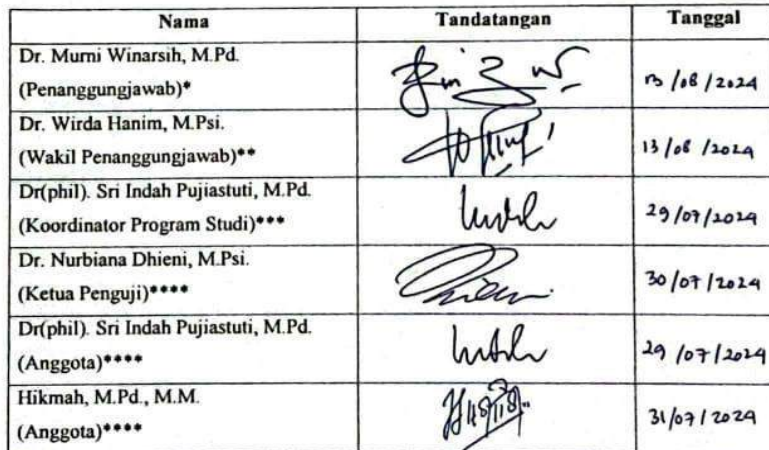 Nama Tandatangan Tanggal
Dr. Murni Winarsih, M.Pd.
(Penanggungjawab)* 13/08/2024
Dr. Wirda Hanim, M.Psi.
(Wakil Penanggungjawab)** 13/08/2024
Dr(phil). Sri Indah Pujiastuti, M.Pd.
(Koordinator Program Studi)*** 29/07/2024
Dr. Nurbiana Dhieni, M.Psi.
(Ketua Penguji)**** 30/07/2024
Dr(phil). Sri Indah Pujiastuti, M.Pd.
(Anggota)**** 29/07/2024
Hikmah, M.Pd., M.M.
(Anggota)**** 31/07/2024